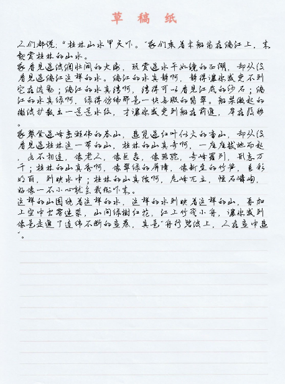 草稿纸
人们都说：“桂林山水甲天下。”我们乘着木船荡在漓江上，来
观赏桂林的山水。
我看见过波澜壮阔的大海，玩赏过水平如镜的西湖，却从没
看见过漓江这样的水。漓江的水真静啊，静得让你感觉不到
它在流动；漓江的水真清啊，清得可以看见江底的沙石；漓
江的水真绿啊，绿得仿佛那是一块无瑕的翡翠。船桨激起的
微波扩散出一道道水纹，才让你感觉到船在前进，岸在后移
。
我攀登过峰峦雄伟的泰山，游览过红叶似火的香山，却从没
看见过桂林这一带的山，桂林的山真奇啊，一座座拔地而起
，各不相连，像老人，像巨象，像骆驼，奇峰罗列，形态万
千；桂林的山真秀啊，像翠绿的屏障，像新生的竹笋，色彩
明丽，倒映水中；桂林的山真险啊，危峰兀立，怪石嶙峋，
好像一不小心就会栽倒下来。
这样的山围绕着这样的水，这样的水倒映着这样的山，再加
上空中云雾迷蒙，山间绿树红花，江上竹筏小舟，让你感到
像是走进了连绵不断的画卷，真是“舟行碧波上，人在画中游
”。